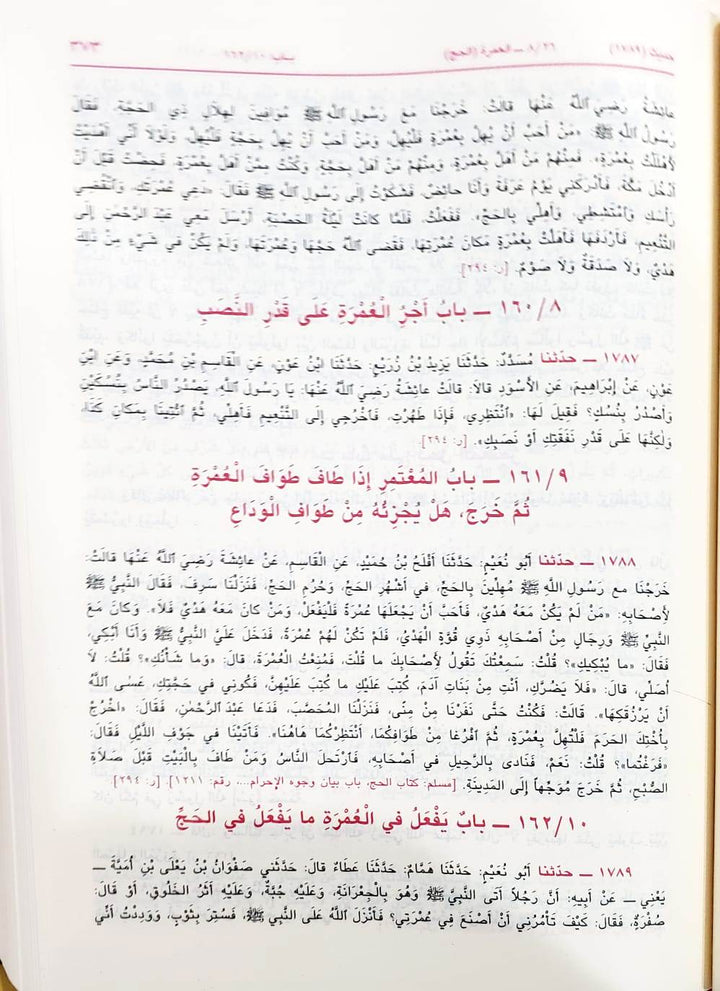 حديث (١٧٨٩) ٨/٢٦ ـ العمرة (الحج) ٣٧٣
عَائِشَةُ رَضِيَ اللَّهُ عَنْهَا قالَتْ: خَرَجْنَا مَعَ رَسُولِ اللهِ ﷺ مُوَافِينَ لِهِلَالِ ذِي الحَجَّةِ، فَقَالَ
رَسُولُ اللهِ ﷺ: «مَنْ أَحَبَّ أَنْ يُهِلَّ بِعُمْرَةٍ فَلْيُهِلَّ، وَمَنْ أَحَبَّ أَنْ يُهِلَّ بِحَجَّةٍ فَلْيُهِلَّ، وَلَوْلَا أَنِّي أَهْدَيْتُ
لَأَهْلَلْتُ بِعُمْرَةٍ». فَمِنْهُمْ مَنْ أَهَلَّ بِعُمْرَةٍ، وَمِنْهُمْ مَنْ أَهَلَّ بِحَجَّةٍ، وَكُنْتُ مِمَّنْ أَهَلَّ بِعُمْرَةٍ، فَحِضْتُ قَبْلَ أَنْ
أَدْخُلَ مَكَّةَ، فَأَدْرَكَنِي يَوْمُ عَرَفَةَ وَأَنَا حائِضٌ، فَشَكَوْتُ إِلَى رَسُولِ اللهِ ﷺ فَقَالَ: «دَعِي عُمْرَتَكِ، وَانْقُضِي
رَأْسَكِ وَامْتَشِطِي، وَأَهِلِّي بِالحَجِّ». فَفَعَلْتُ، فَلَمَّا كانَتْ لَيْلَةُ الحَصْبَةِ، أَرْسَلَ مَعِي عَبْدَ الرَّحْمٰنِ إِلَى
التَّنْعِيمِ، فَأَرْدَفَهَا فَأَهَلَّتْ بِعُمْرَةٍ مَكانَ عُمْرَتِهَا، فَقَضَى اللَّهُ حَجَّهَا وَعُمْرَتَهَا، وَلَمْ يَكُنْ في شَيْءٍ مِنْ ذٰلِكَ
هَدْيٌ، وَلَا صَدَقَةٌ وَلَا صَوْمٌ. [ر: ٢٩٤]
١٦٠/٨ ـ بابُ أَجْرِ الْعُمْرَةِ عَلَى قَدْرِ النَّصَبِ
١٧٨٧ ـ حدّثنا مُسَدَّدٌ: حَدَّثَنَا يَزِيدُ بْنُ زُرَيْعٍ: حَدَّثَنَا ابْنُ عَوْنٍ، عَنِ الْقَاسِمِ بْنِ مُحَمَّدٍ، وَعَنِ ابْنِ
عَوْنٍ، عَنْ إِبْرَاهِيمَ، عَنِ الأَسْوَدِ قالَا: قالَتْ عائِشَةُ رَضِيَ اللَّهُ عَنْهَا: يَا رَسُولَ اللهِ، يَصْدُرُ النَّاسُ بِنُسُكَيْنِ
وَأَصْدُرُ بِنُسُكٍ؟ فَقِيلَ لَهَا: «انْتَظِرِي، فَإِذَا طَهُرْتِ، فَاخْرُجِي إِلَى التَّنْعِيمِ فَأَهِلِّي، ثُمَّ ائْتِينَا بِمَكانِ كَذَا،
وَلٰكِنَّهَا عَلَى قَدْرِ نَفَقَتِكِ أَوْ نَصَبِكِ». [ر: ٢٩٤]
١٦١/٩ ـ بابُ المُعْتَمِرِ إِذَا طَافَ طَوَافَ الْعُمْرَةِ
ثُمَّ خَرَجَ، هَلْ يُجْزِئُهُ مِنْ طَوَافِ الْوَدَاعِ
١٧٨٨ ـ حدّثنا أَبُو نُعَيْمٍ: حَدَّثَنَا أَفْلَحُ بْنُ حُمَيْدٍ، عَنِ الْقَاسِمِ، عَنْ عائِشَةَ رَضِيَ اللَّهُ عَنْهَا قالَتْ:
خَرَجْنَا مع رَسُولِ اللهِ ﷺ مُهِلِّينَ بِالحَجِّ، في أَشْهُرِ الحَجِّ، وَحُرُمِ الحَجِّ، فَنَزَلْنَا سَرِفَ، فَقَالَ النَّبِيُّ ﷺ
لِأَصْحَابِهِ: «مَنْ لَمْ يَكُنْ مَعَهُ هَدْيٌ، فَأَحَبَّ أَنْ يَجْعَلَهَا عُمْرَةً فَلْيَفْعَلْ، وَمَنْ كانَ مَعَهُ هَدْيٌ فَلَا». وَكانَ مَعَ
النَّبِيِّ ﷺ وَرِجالٍ مِنْ أَصْحَابِهِ ذَوِي قُوَّةٍ الْهَدْيُ، فَلَمْ تَكُنْ لَهُمْ عُمْرَةً، فَدَخَلَ عَلَيَّ النَّبِيُّ ﷺ وَأَنَا أَبْكِي،
فَقَالَ: «ما يُبْكِيكِ؟» قُلْتُ: سَمِعْتُكَ تَقُولُ لِأَصْحَابِكَ ما قُلْتَ، فَمُنِعْتُ الْعُمْرَةَ، قالَ: «وَما شَأْنُكِ؟» قُلْتُ: لَا
أُصَلِّي، قالَ: «فَلَا يَضُرَّكِ، أَنْتِ مِنْ بَنَاتِ آدَمَ، كُتِبَ عَلَيْكِ ما كُتِبَ عَلَيْهِنَّ، فَكُونِي في حَجَّتِكِ، عَسَى اللَّهُ
أَنْ يَرْزُقَكِهَا». قَالَتْ: فَكُنْتُ حَتَّى نَفَرْنَا مِنْ مِنًى، فَنَزَلْنَا المُحَصَّبَ، فَدَعَا عَبْدَ الرَّحْمٰنِ، فَقَالَ: «اخْرُجْ
بِأُخْتِكَ الحَرَمَ فَلْتُهِلَّ بِعُمْرَةٍ، ثُمَّ افْرُغَا مِنْ طَوَافِكُمَا، أَنْتَظِرْكُمَا هَاهُنَا». فَأَتَيْنَا في جَوْفِ اللَّيْلِ فَقَالَ:
«فَرَغْتُمَا؟» قُلْتُ: نَعَمْ، فَنَادَى بِالرَّحِيلِ في أَصْحَابِهِ، فَارْتَحَلَ النَّاسُ وَمَنْ طَافَ بِالْبَيْتِ قَبْلَ صَلَاةِ
الصُّبْحِ، ثُمَّ خَرَجَ مُوَجِّهاً إِلَى المَدِينَةِ. [مسلم: كتاب الحج، باب بيان وجوه الإحرام...، رقم: ١٢١١]. [ر: ٢٩٤]
١٦٢/١٠ ـ بابٌ يَفْعَلُ في الْعُمْرَةِ ما يَفْعَلُ في الحَجِّ
١٧٨٩ ـ حدّثنا أَبُو نُعَيْمٍ: حَدَّثَنَا هَمَّامٌ: حَدَّثَنَا عَطَاءٌ قالَ: حَدَّثَنِي صَفْوَانُ بْنُ يَعْلَى بْنِ أُمَيَّةَ ـ
يَعْنِي ـ عَنْ أَبِيهِ: أَنَّ رَجُلاً أَتَى النَّبِيَّ ﷺ وَهُوَ بِالْجِعْرَانَةِ، وَعَلَيْهِ جُبَّةٌ، وَعَلَيْهِ أَثَرُ الخَلُوقِ، أَوْ قالَ:
صُفْرَةٌ، فَقَالَ: كَيْفَ تَأْمُرُنِي أَنْ أَصْنَعَ في عُمْرَتِي؟ فَأَنْزَلَ اللَّهُ عَلَى النَّبِيِّ ﷺ، فَسُتِرَ بِثَوْبٍ، وَوَدِدْتُ أَنِّي